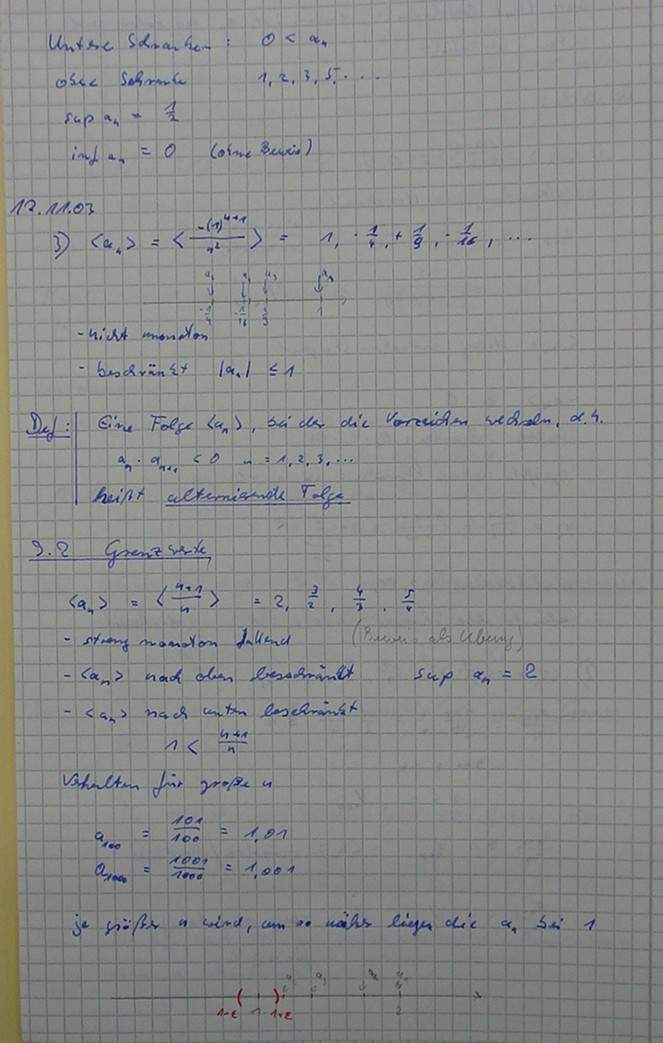 Untere Schranken: 0 < aₙ
obere Schranke 1, 2, 3, 5, ...
sup aₙ = 1/2
inf aₙ = 0 (ohne Beweis)
12.11.03
3) <aₙ> = < -(1)ⁿ⁺¹/n² > = 1, -1/4, +1/9, -1/16, ...
a₂ a₄ a₃ a₁
-1/4 -1/16 1/9 1
- nicht monoton
- beschränkt |aₙ| ≤ 1
Def: Eine Folge <aₙ>, bei der die Vorzeichen wechseln, d.h.
aₙ · aₙ₊₁ < 0 n = 1, 2, 3, ...
heißt alternierende Folge
9.2 Grenzwerte
<aₙ> = < n+1/n > = 2, 3/2, 4/3, 5/4
- streng monoton fallend (Beweis als Übung)
- <aₙ> nach oben beschränkt sup aₙ = 2
- <aₙ> nach unten beschränkt
1 < n+1/n
Verhalten für große n
a₁₀₀ = 101/100 = 1,01
a₁₀₀₀ = 1001/1000 = 1,001
je größer n wird, um so näher liegen die aₙ bei 1
a₃ a₂ a₁
1-ε 1 1+ε 2